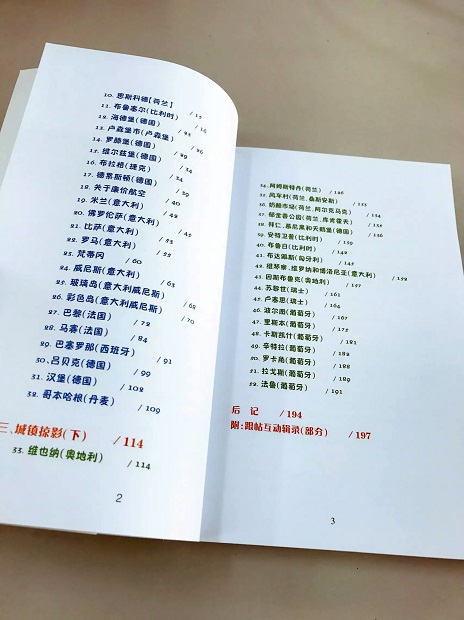 10. 恩斯科德【荷兰】 / 15
11. 布鲁塞尔(比利时) / 16
12. 海德堡(德国)
13. 卢森堡市(卢森堡)
14. 罗滕堡(德国)
15. 维尔兹堡(德国)
16. 布拉格(捷克) / 34
17. 德累斯顿(德国)
18. 关于廉价航空 / 40
19. 米兰(意大利) / 42
20. 佛罗伦萨(意大利) / 45
21. 比萨(意大利)
22. 罗马(意大利) / 52
23. 梵蒂冈 / 60
24. 威尼斯(意大利)
25. 玻璃岛(意大利威尼斯) / 68
26. 彩色岛(意大利威尼斯) / 70
27. 巴黎(法国) / 72
28. 马赛(法国) / 84
29. 巴塞罗那(西班牙) / 91
30. 吕贝克(德国) / 99
31. 汉堡(德国) / 102
32. 哥本哈根(丹麦) / 109
三、城镇掠影(下) / 114
33. 维也纳(奥地利) / 114
2
34. 阿姆斯特丹(荷兰) / 126
35. 风车村(荷兰,桑斯安斯)
36. 奶酪市场(荷兰,阿尔克马克)
37. 郁金香公园(荷兰,库肯霍夫)
38. 拜仁、慕尼黑和天鹅堡(德国)
39. 安特卫普(比利时) / 139
40. 布鲁日(比利时) / 142
41. 布达佩斯(匈牙利) / 145
42. 维琴察、维罗纳和博洛尼亚(意大利) / 152
43. 因斯布鲁克(奥地利) / 158
44. 苏黎世(瑞士) / 161
45. 卢塞恩(瑞士) / 164
46. 波尔图(葡萄牙) / 167
47. 里斯本(葡萄牙) / 174
48. 卡斯凯什(葡萄牙) / 182
49. 辛特拉(葡萄牙) / 184
50. 罗卡角(葡萄牙) / 188
51. 拉戈斯(葡萄牙) / 189
52. 法鲁(葡萄牙) / 191
后 记 / 194
附:跟帖互动辑录(部分) / 197
3